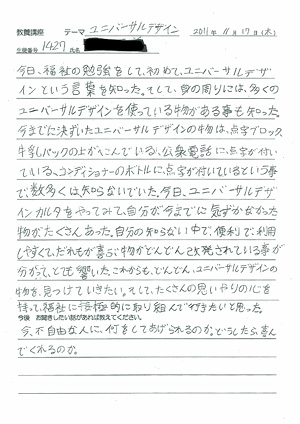 教養講座 テーマ ユニバーサルデザイン 2011年 11月 17日(木)
生徒番号 1427 氏名
今日、福祉の勉強をして、初めて、ユニバーサルデザ
インという言葉を知った。そして、身の周りには、多くの
ユニバーサルデザインを使っている物がある事も知った。
今までに決ずいたユニバーサルデザインの物は、点字ブロック、
牛乳パックの上がへこんでいる、公衆電話に点字が付い
ている、コンディショナーのボトルに点字が付いているという事
で、数多くは知らないでいた。今日、ユニバーサルデザ
インカルタをやってみて、自分が今までに気ずかなかった
物がたくさんあった。自分の知らない中で、便利で利用
しやすくて、だれもが喜ぶ物がどんどん改発されている事が
分かって、とても驚いた。これからも、どんどん、ユニバーサルデザインの
物を、見つけていきたい。そして、たくさんの思いやりの心を
持って、福祉に積極的に取り組んで行きたいと思った。
今後 お聞きしたい話があれば教えてください。
今、不自由な人に、何をしてあげられるのか。どうしたら、喜ん
でくれるのか。